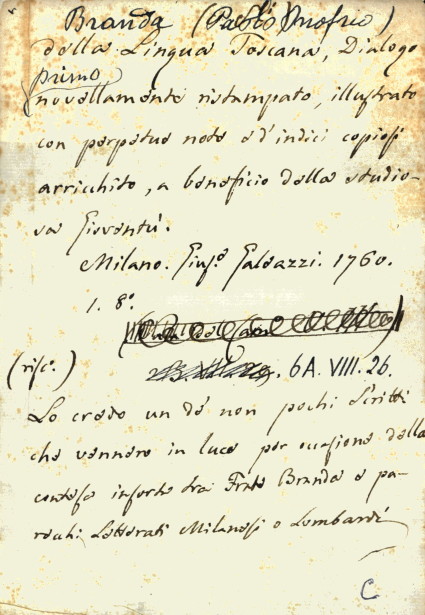 Branda (Paolo Onofrio)
della Lingua Toscana, Dialogo
primo
novellamente ristampato, illustrato
con perpetue note e d'indici copiosi
arricchito, a beneficio della studio-
sa Gioventù.
Milano. Gius.e Galeazzi. 1760.
1. 8°.
(risc.)
6A. VIII. 26.
Lo credo un de' non pochi Scritti
che vennero in luce per occasione della
contesa insorta tra Frate Branda e pa-
recchi Letterati Milanesi o Lombardi
C